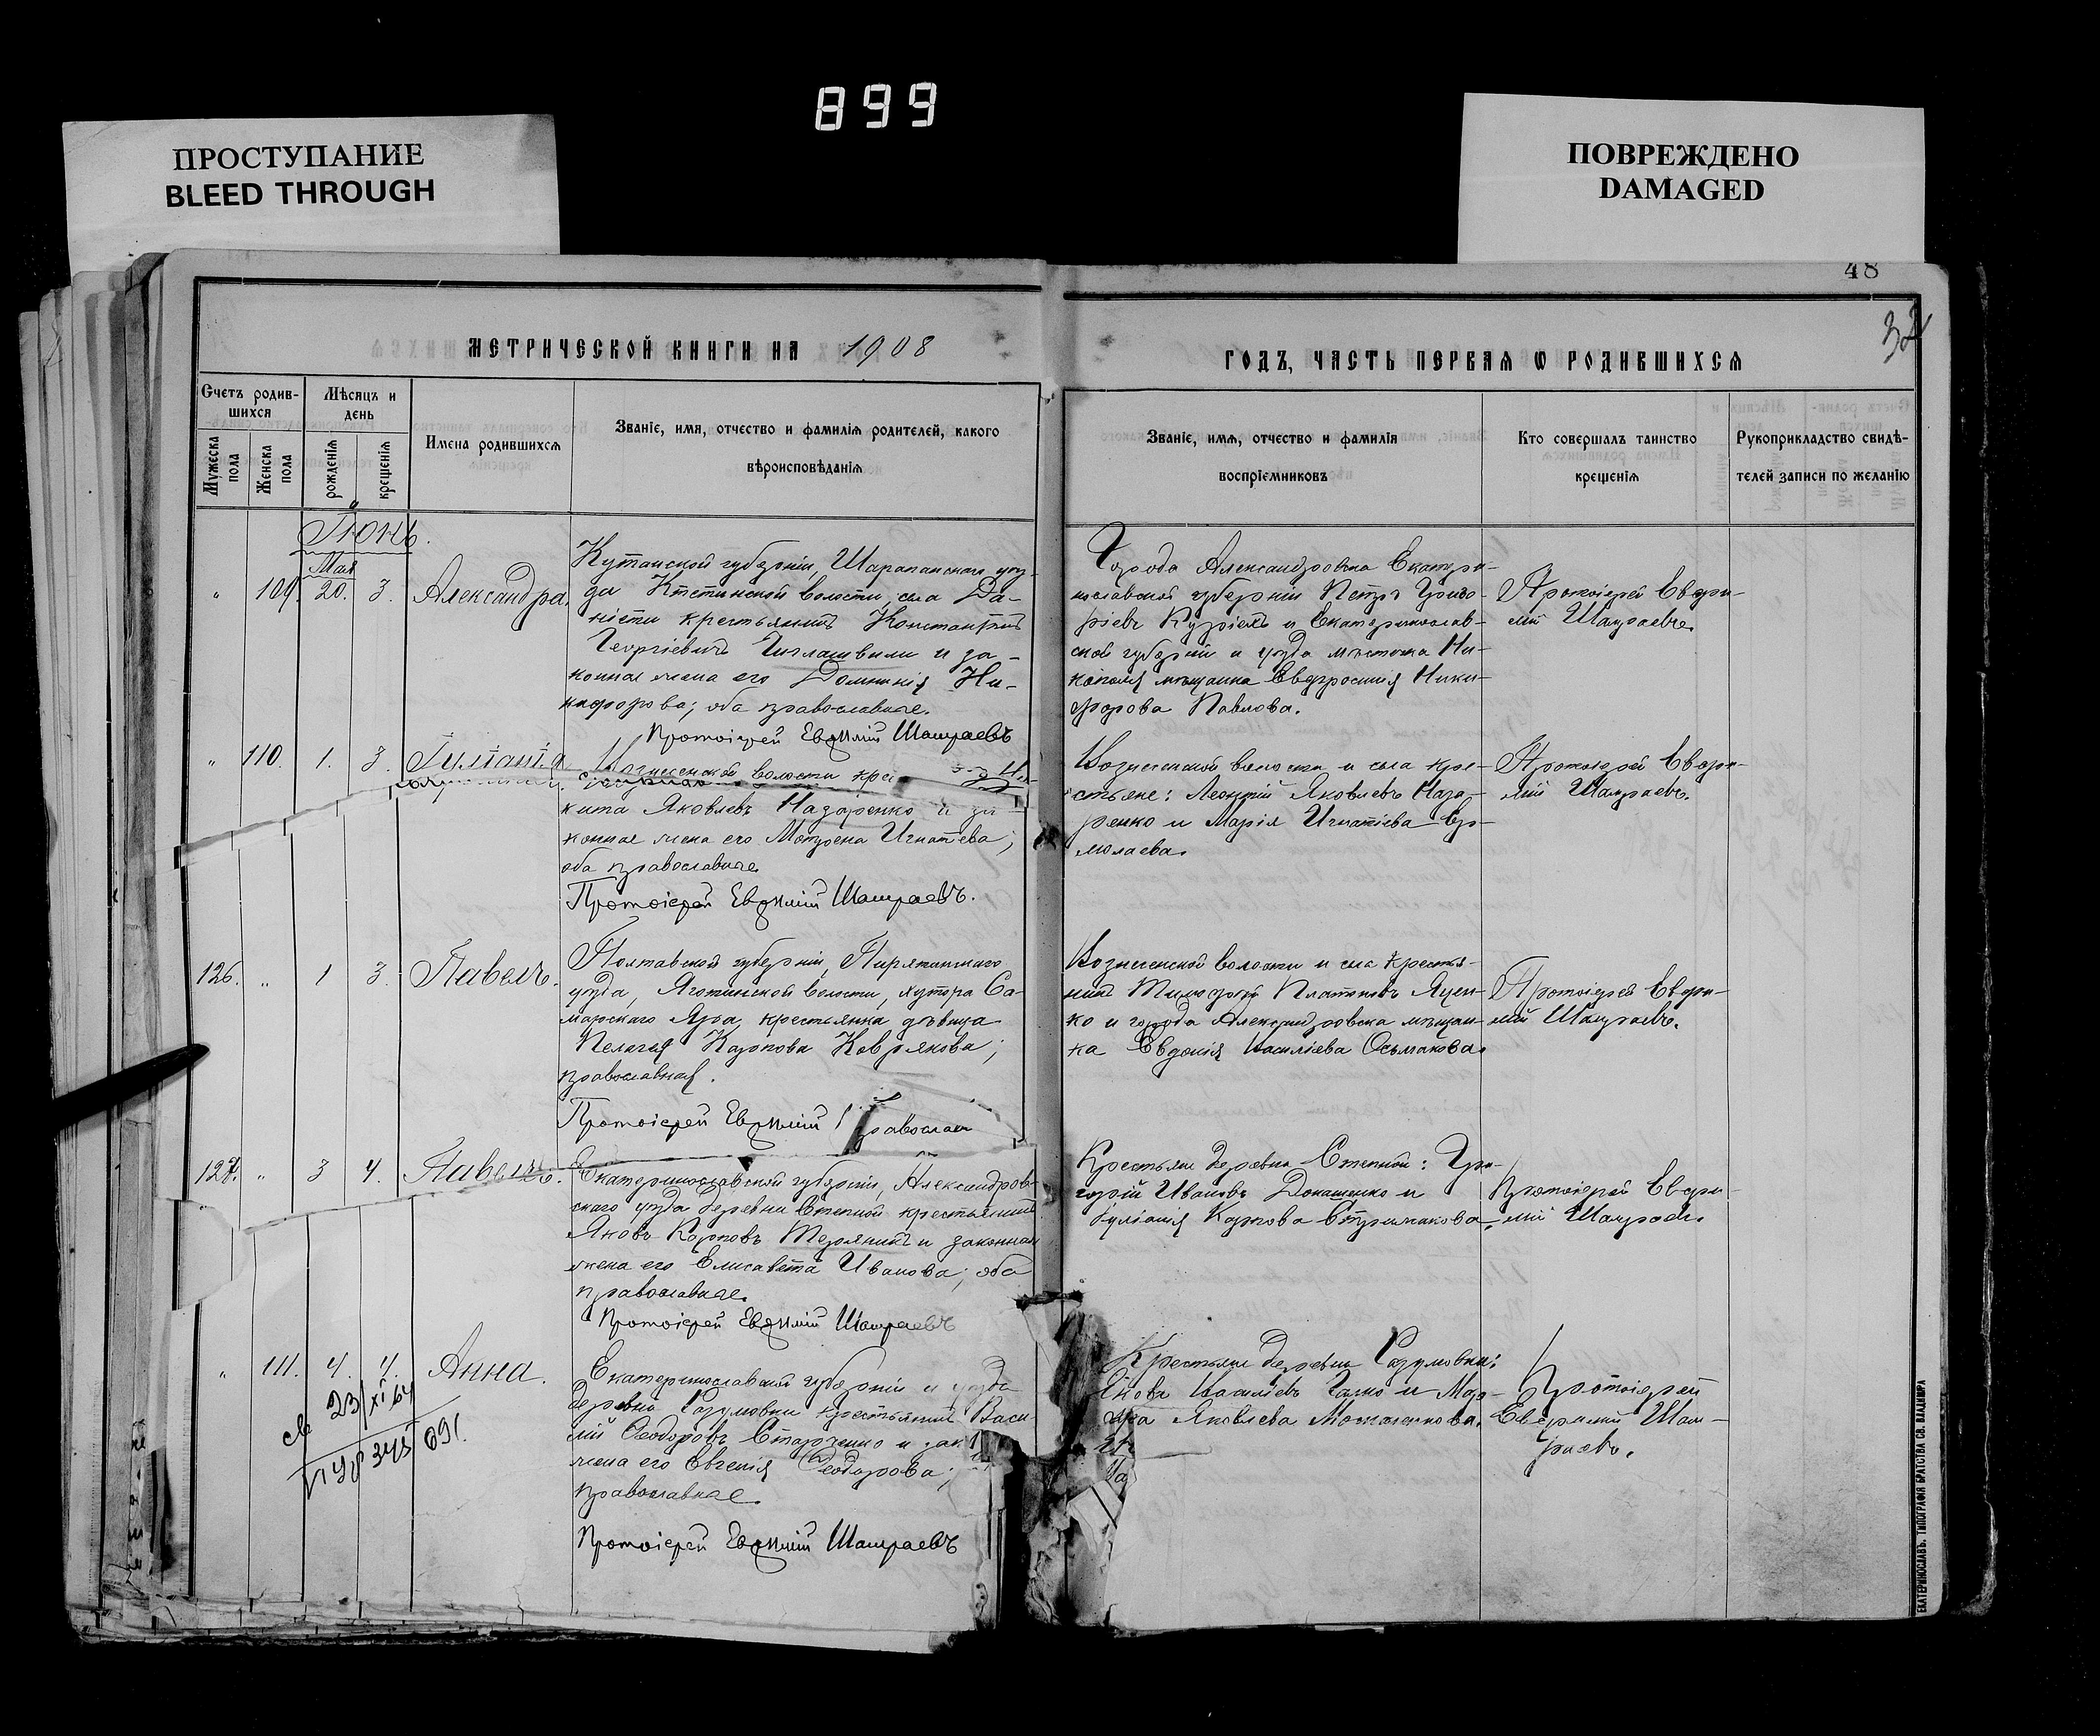 899
ПРОСТУПАНИЕ
BLEED THROUGH
ПОВРЕЖДЕНО
DAMAGED
48
32
МЕТРИЧЕСКОЙ КНИГИ НА 1908
ГОДЪ, ЧАСТЬ ПЕРВАЯ Ѡ РОДИВШИХСЯ
Счетъ родив-
шихся
Мѣсяцъ и
день
Мужеска
пола
Женска
пола
рожденія
крещенія
Имена родившихся
Званіе, имя, отчество и фамилія родителей, какого
вѣроисповѣданія
Званіе, имя, отчество и фамилія
воспріемниковъ
Кто совершалъ таинство
крещенія
Рукоприкладство свидѣ-
телей записи по желанію
Іюнь.
Мая
" 109. 20. 3. Александра.
Кутаиской губерніи, Шарапанскаго уѣз-
да волости, села Да-
крестьянинъ Константинъ
Георгіевичъ и за-
конная жена его Домникія Ни-
кифорова; оба православные.
Протоіерей Евѳимій Шамраевъ
Города Александровска Екатери-
нославской губерніи Петръ Григо-
ріевъ и Екатеринослав-
ской губерніи и уѣзда мѣстечка Ни-
кополя мѣщанка Евфросинія Ники-
форова Павлова.
Протоіерей Евфи-
мій Шамраевъ.
" 110. 1. 3. Іуліанія
Вознесенской волости
кита Яковлевъ Назаренко и за-
конная жена его Мотрона Игнатіева;
оба православные
Протоіерей Евѳимій Шамраевъ.
Вознесенской волости и села кре-
стьяне: Леонтій Яковлевъ Наза-
ренко и Марія Игнатіева Ер-
молаева.
Протоіерей Евфи-
мій Шамраевъ.
126. " 1 3. Павелъ.
Полтавской губерніи, Пирятинскаго
уѣзда, Яготинской волости, хутора Са-
марскаго Яра, крестьянка дѣвица
Пелагія Карпова Ковріжова;
православная.
Протоіерей Евѳимій
православн
Вознесенской волости и села крестья-
нинъ Тимофей Платоновъ Яцен-
ко и города Александровска мѣщан-
ка Евдокія Василіева Осьмакова.
Протоіерей Евфи-
мій Шамраевъ.
127. " 3 4. Павелъ.
Екатеринославской губерніи, Александров-
скаго уѣзда деревни Степной крестьянинъ
Яковъ Карповъ и законная
жена его Елисавета Иванова; оба
православные.
Протоіерей Евѳимій Шамраевъ
Крестьяне деревни Степной: Гри-
горій Ивановъ и
Іуліанія Карпова Стрижакова.
Протоіерей Евфи-
мій Шамраевъ.
" 111. 4. 4. Анна.
23/XI 64
345 691
Екатеринославской губерніи и уѣзда
деревни Разумовки крестьянинъ Васи-
лій Ѳеодоровъ Старченко и зак
жена его Евгенія Ѳеодорова;
православные.
Протоіерей Евѳимій Шамраевъ
Крестьяне деревни Разумовки:
Яковъ Василіевъ и Мар-
ѳа Яковлева
Протоіерей
Евфимій Шам-
раевъ.
ЕКАТЕРИНОСЛАВЪ. ТИПОГРАФІЯ БРАТСТВА СВ. ВЛАДИМІРА